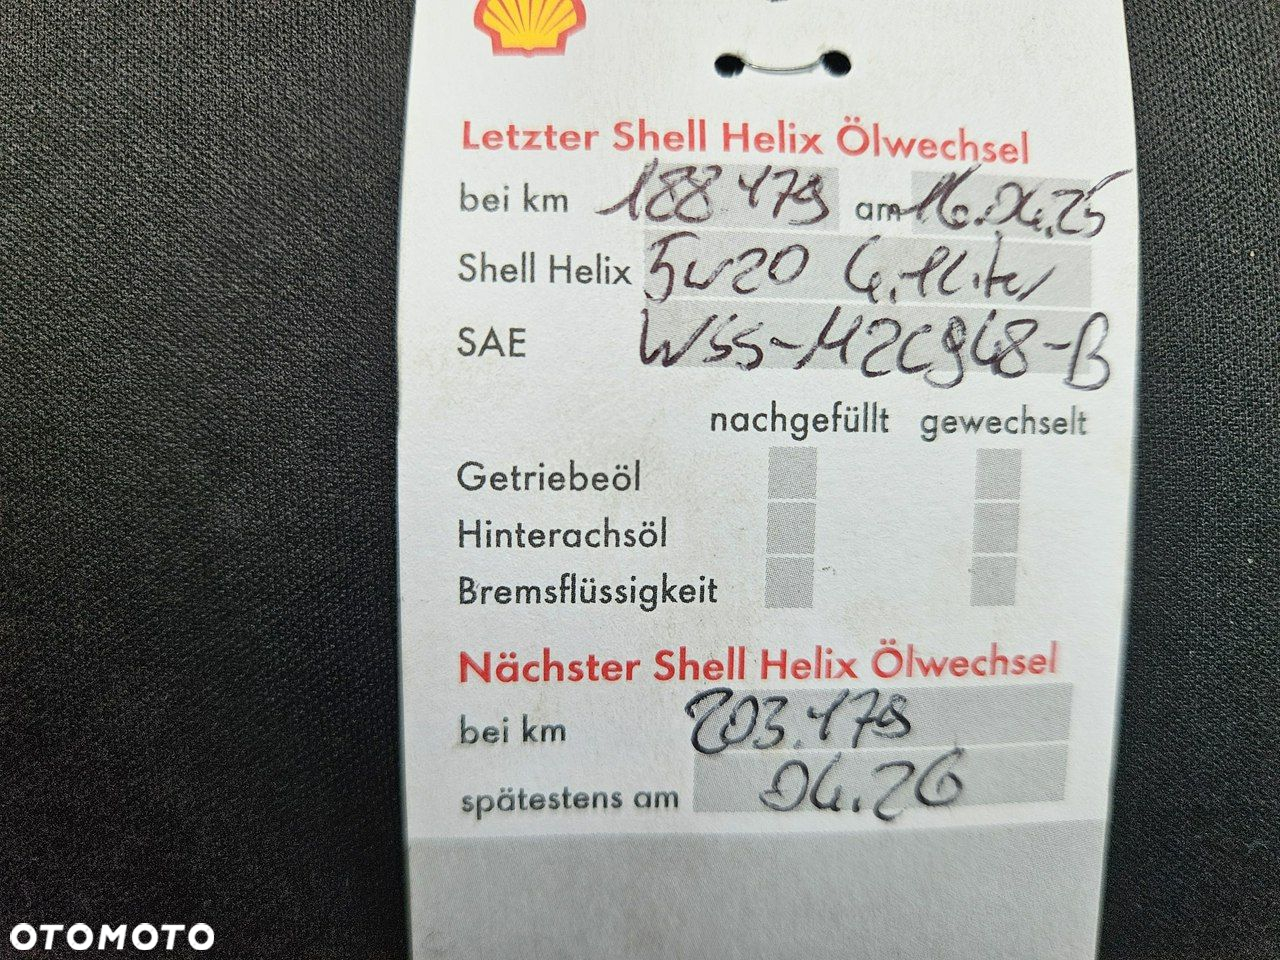 Letzter Shell Helix Ölwechsel
bei km 188 179 am 16.04.25
Shell Helix 5w20 4,1 Liter
SAE WSS-M2C948-B
nachgefüllt gewechselt
Getriebeöl
Hinterachsöl
Bremsflüssigkeit
Nächster Shell Helix Ölwechsel
bei km 203.179
spätestens am 04.26
OTOMOTO